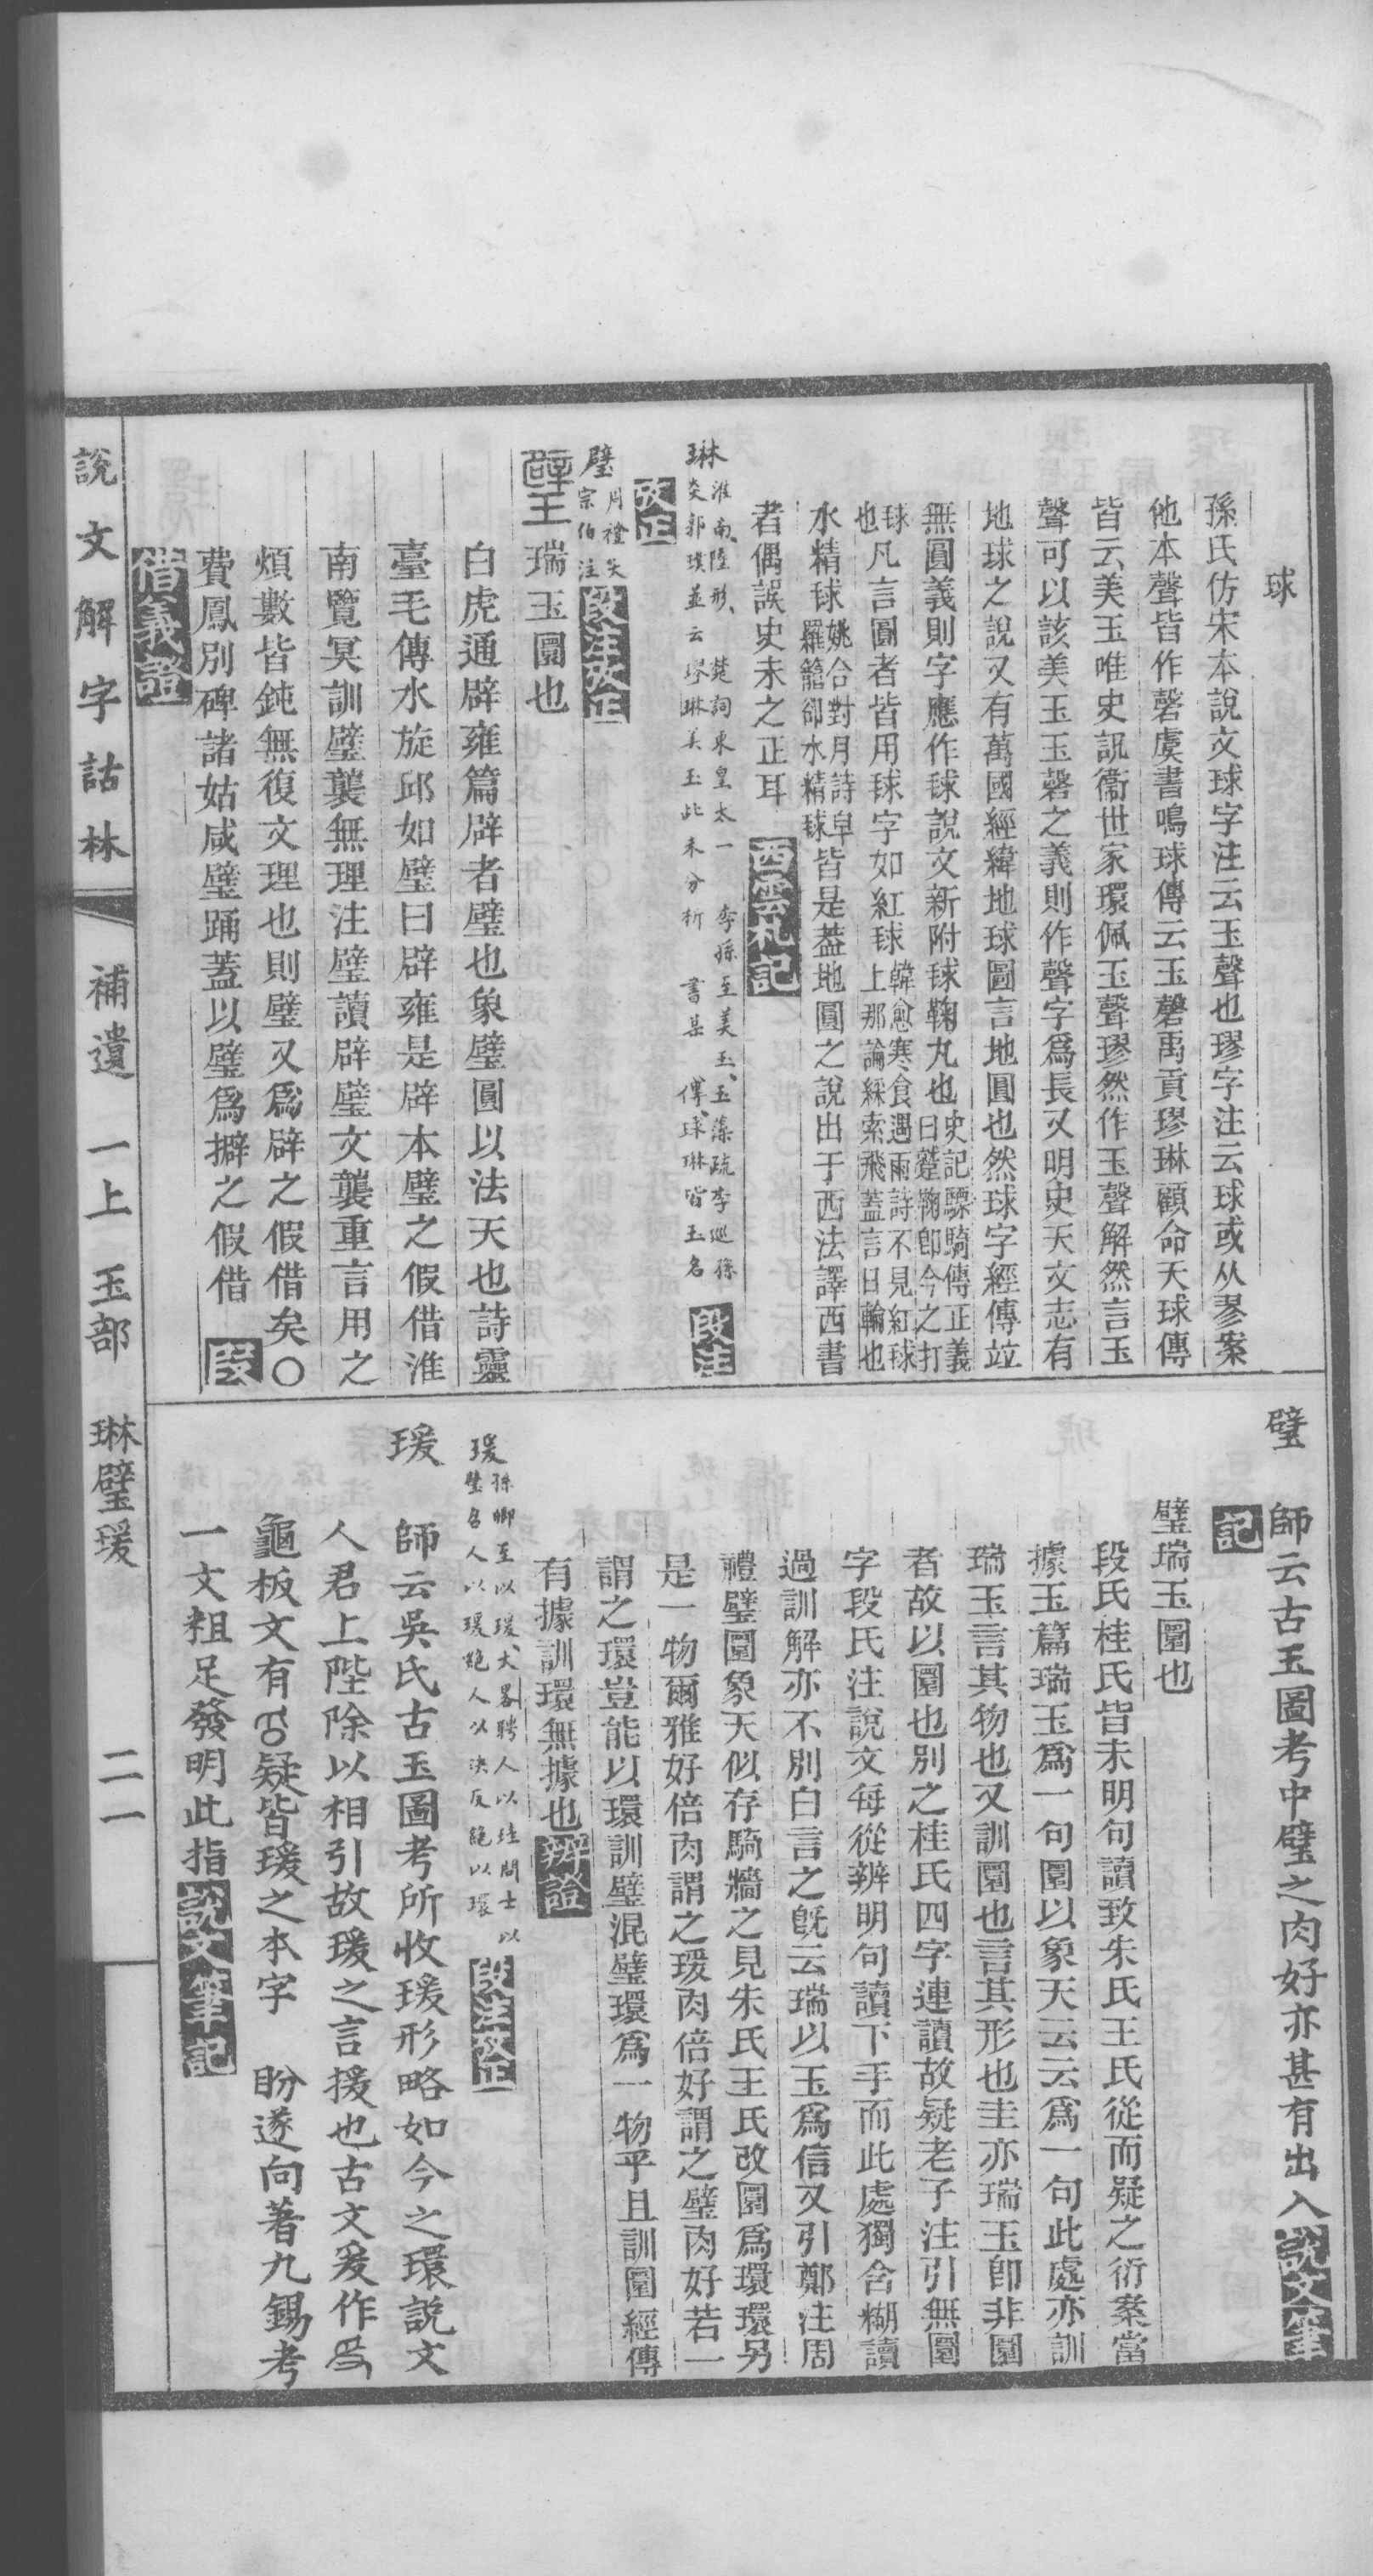 球
孫氏仿宋本說文球字注云玉聲也璆字注云球或从翏案
他本聲皆作磬虞書鳴球傳云玉磬禹貢璆琳顧命天球傳
皆云美玉唯史記衞世家環佩玉聲璆然作玉聲解然言玉
聲可以該美玉玉磬之義則作聲字爲長又明史天文志有
地球之說又有萬國經緯地球圖言地圓也然球字經傳竝
無圓義則字應作毬說文新附毬鞠丸也史記驃騎傳正義
曰蹵鞠卽今之打
毬
也凡言圓者皆用毬字如紅毬韓愈寒食遇雨詩不見紅毬
上那論綵索飛蓋言日輪也
水精毬姚合對月詩皁
羅籠卻水精毬皆是葢地圓之說出于西法譯西書
者偶誤史未之正耳 西雲札記
琳淮南陸形、楚詞東皇太一 李孫至美玉、玉藻疏李巡孫
炎郭璞並云璆琳美玉此未分析 書某傳、球琳皆玉名 段注
攷正
璧周禮大
宗伯注段注攷正
璧瑞玉圜也
白虎通辟雍篇辟者璧也象璧圓以法天也詩靈
臺毛傳水旋邱如璧曰辟雍是辟本璧之假借淮
南覽冥訓璧襲無理注璧讀辟璧文襲重言用之
煩數皆鈍無復文理也則璧又爲辟之假借矣〇
費鳳別碑諸姑咸璧踊蓋以璧爲擗之假借 段
借義證
璧 師云古玉圖考中璧之肉好亦甚有出入說文筆
記
璧瑞玉圜也
段氏桂氏皆未明句讀致朱氏王氏從而疑之衍案當
據玉篇瑞玉爲一句圜以象天云云爲一句此處亦訓
瑞玉言其物也又訓圜也言其形也圭亦瑞玉卽非圜
者故以圜也別之桂氏四字連讀故疑老子注引無圜
字段氏注說文每從辨明句讀下手而此處獨含糊讀
過訓解亦不別白言之旣云瑞以玉爲信又引鄭注周
禮璧圜象天似存騎牆之見朱氏王氏改圜爲環環另
是一物爾雅好倍肉謂之瑗肉倍好謂之璧肉好若一
謂之環豈能以環訓璧混璧環爲一物乎且訓圜經傳
有據訓環無據也辨證
瑗孫卿至以瑗、大畧聘人以珪問士以
璧召人以瑗絕人以決反絕以環 段注攷正
瑗 師云吳氏古玉圖考所收瑗形略如今之環說文
人君上陛除以相引故瑗之言援也古文爰作
龜板文有 疑皆瑗之本字 盼遂向著九錫考
一文粗足發明此指說文筆記
說文解字詁林 補遺 一上 玉部 琳璧瑗 二一